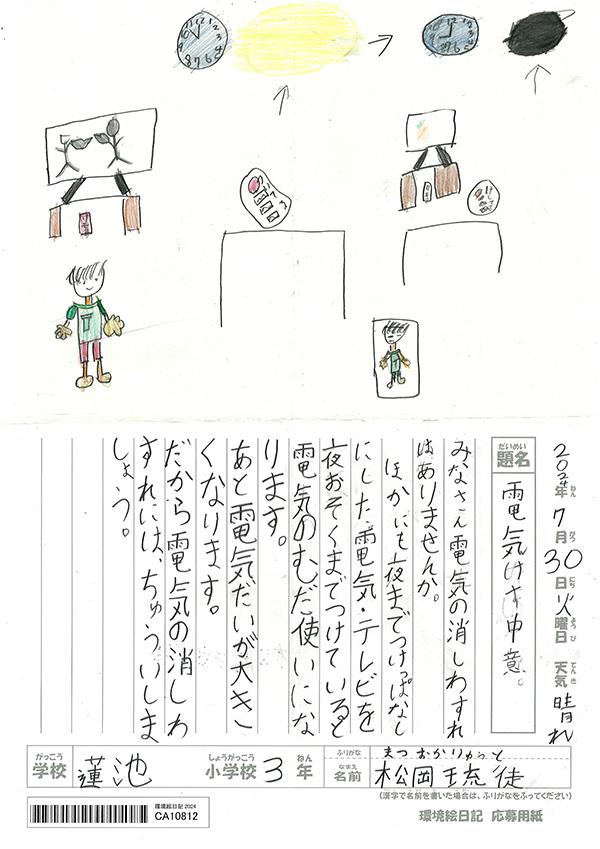 2024年ねん7月がつ30日にち火曜日ようび 天気てんき 晴れ
だいめい
題名
電気けす中意。
みなさん電気の消しわすれ
はありませんか。
ほかにも夜までつけっぱなし
にした、電気・テレビを
夜おそくまでつけていると
電気のむだ使いにな
ります。
あと電気だいが大き
くなります。
だから電気の消しわ
すれには、ちゅういしま
しょう。
がっこう
学校 蓮池
しょうがっこう ねん
小学校 3 年
ふりがな まつ おか りゅうと
なまえ
名前 松岡琉徒
(漢字で名前を書いた場合は、ふりがなをふってください)
環境絵日記 2024
CA10812
環境絵日記 応募用紙